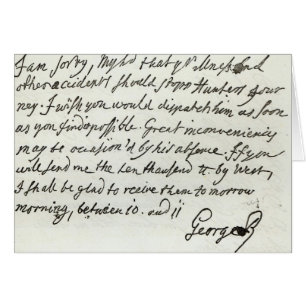 I am sorry, Mylord that yr. illness, and
other accidents should stopp Hunters Jour
ney. I wish you would dispatch him as soon
as you find possible. Great inconveniencies
may be occasion'd by his absence. If you
will send me the ten thousand ll. by West,
I shall be glad to receive them to morrow
morning, between 10. and 11
George R